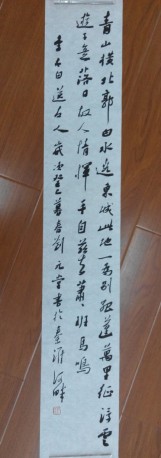 青山横北郭白水遶東城此地一為別孤蓬萬里征浮雲
遊子意落日故人情揮手自茲去蕭蕭班馬鳴
李白送友人歲次癸巳暮春劉元堂書於秦淮河畔